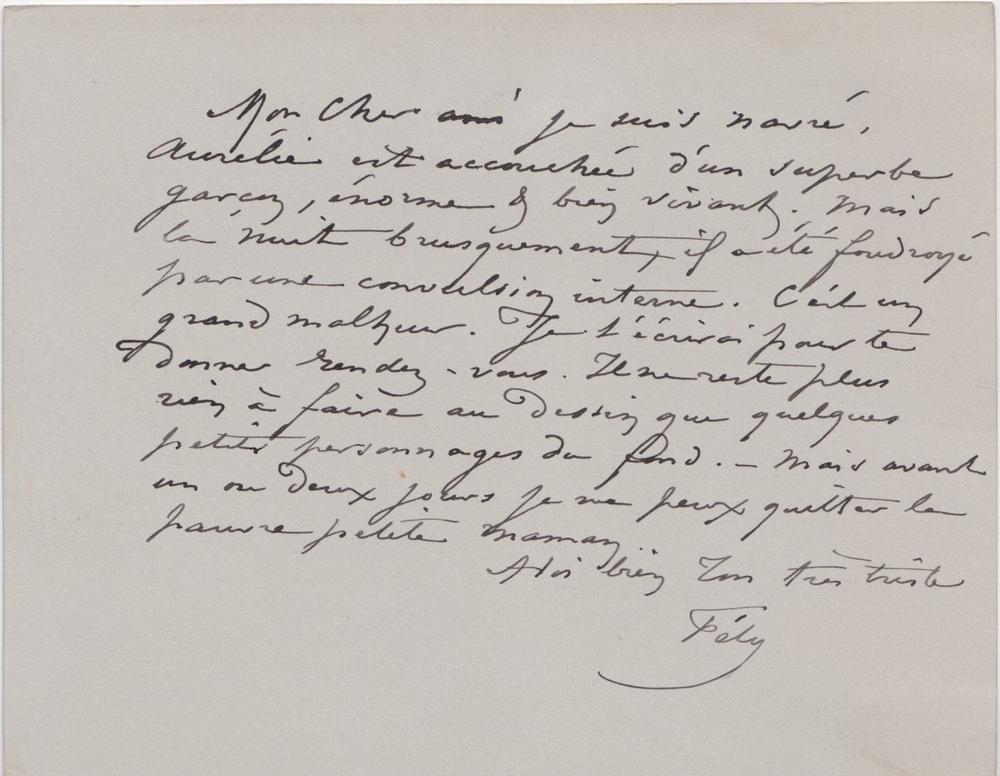 Mon Cher ami je suis navré,
Aurélie est accouchée d'un superbe
garçon, énorme & bien vivant. Mais
la nuit brusquement, il a été foudroyé
par une convulsion interne. C'est un
grand malheur. Je t'écrirai pour te
donner rendez-vous. Il ne reste plus
rien à faire au dessin que quelques
petits personnages du fond. – Mais avant
un ou deux jours je ne peux quitter la
pauvre petite maman.
A toi bien Ton très triste
Fély